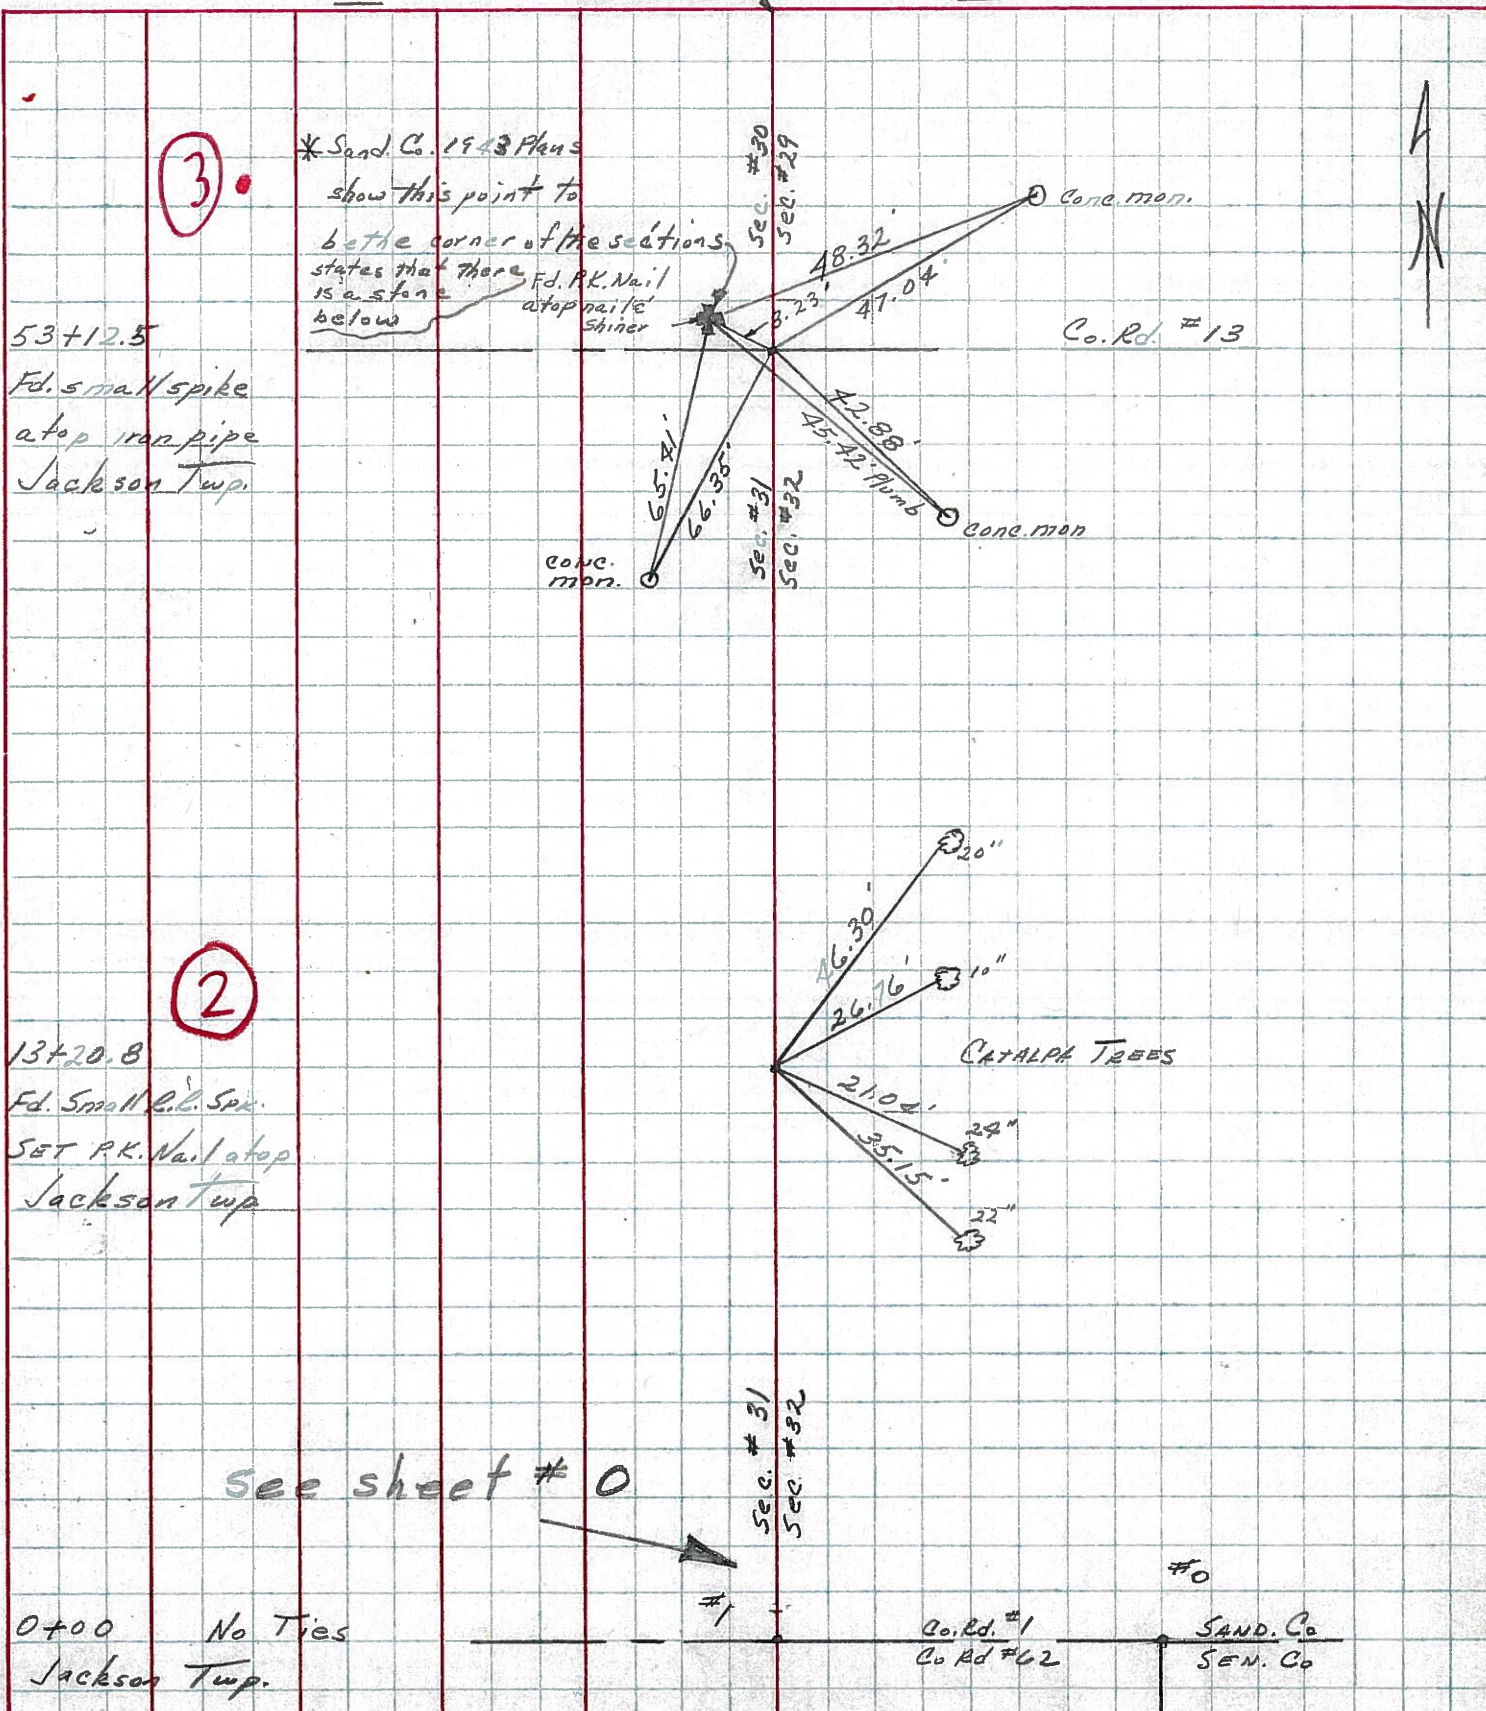 3
* Sand. Co. 1943 Plans
show this point to
be the corner of the sections
states that there
is a stone
below
Fd. P.K. Nail
atop nail &
Shiner
Sec. #30
Sec. #29
conc. mon.
48.32'
47.04'
3.23'
Co. Rd. #13
53+12.5
Fd. small spike
atop iron pipe
Jackson Twp.
42.88'
45.42' Plumb
65.41'
66.35'
Sec. #31
Sec. #32
conc. mon
conc.
mon.
20"
46.30'
10"
26.76'
2
13+20.8
Fd. Small R.R. Spk.
SET P.K. Nail atop
Jackson Twp
CATALPA TREES
21.04'
24"
35.15'
22"
Sec. #31
Sec. #32
See sheet # 0
#1
#0
0+00 No Ties
Jackson Twp.
Co. Rd. #1
Co Rd #62
SAND. Co
SEN. Co